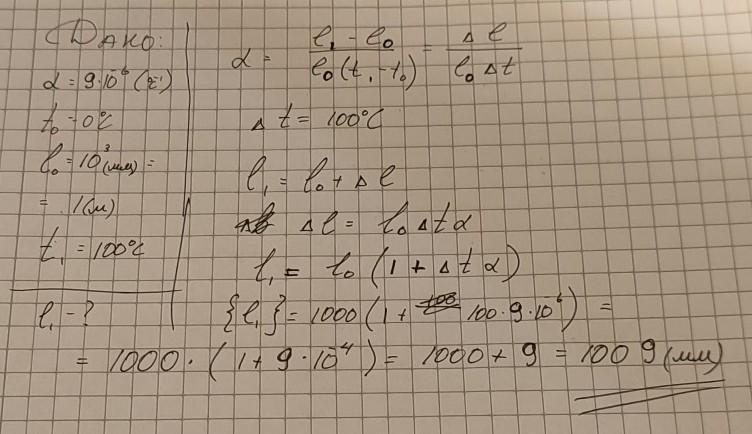 Дано:
α = 9·10⁻⁶ (°C⁻¹)
t₀ = 0°C
l₀ = 10³ (мм) =
= 1(м)
t₁ = 100°C
l₁ - ?
α = (l₁ - l₀)/(l₀(t₁ - t₀)) = Δl/(l₀ Δt)
Δt = 100°C
l₁ = l₀ + Δl
Δl = l₀ Δt α
l₁ = l₀ (1 + Δt α)
{l₁} = 1000 (1 + 100·9·10⁻⁶) =
= 1000 · (1 + 9·10⁻⁴) = 1000 + 9 = 1009 (мм)